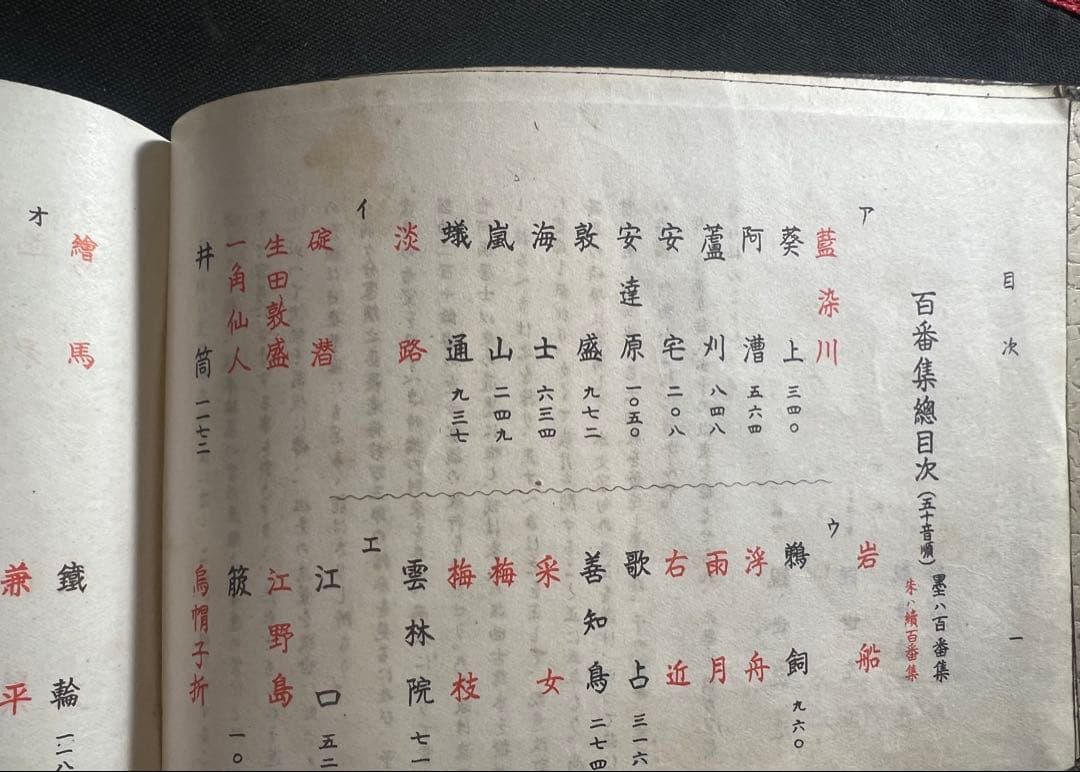 目次
一
百番集總目次(五十音順)
墨ハ百番集
朱ハ續百番集
ア
藍染川
葵上 三四〇
阿漕 五六四
蘆刈 八四八
安宅 二〇八
安達原 一〇五〇
敦盛 九七二
海士 六三四
嵐山 二四九
蟻通 九三七
淡路
イ
碇潜
生田敦盛
一角仙人
井筒 一一七二
岩船
ウ
鵜飼 九六〇
浮舟
雨月
右近
歌占 三一六
善知鳥 二七四
采女
梅
梅枝
雲林院 七一
エ
江口 五二
江野島
箙 一〇
烏帽子折
繪馬
オ
鐵輪 一二八
兼平